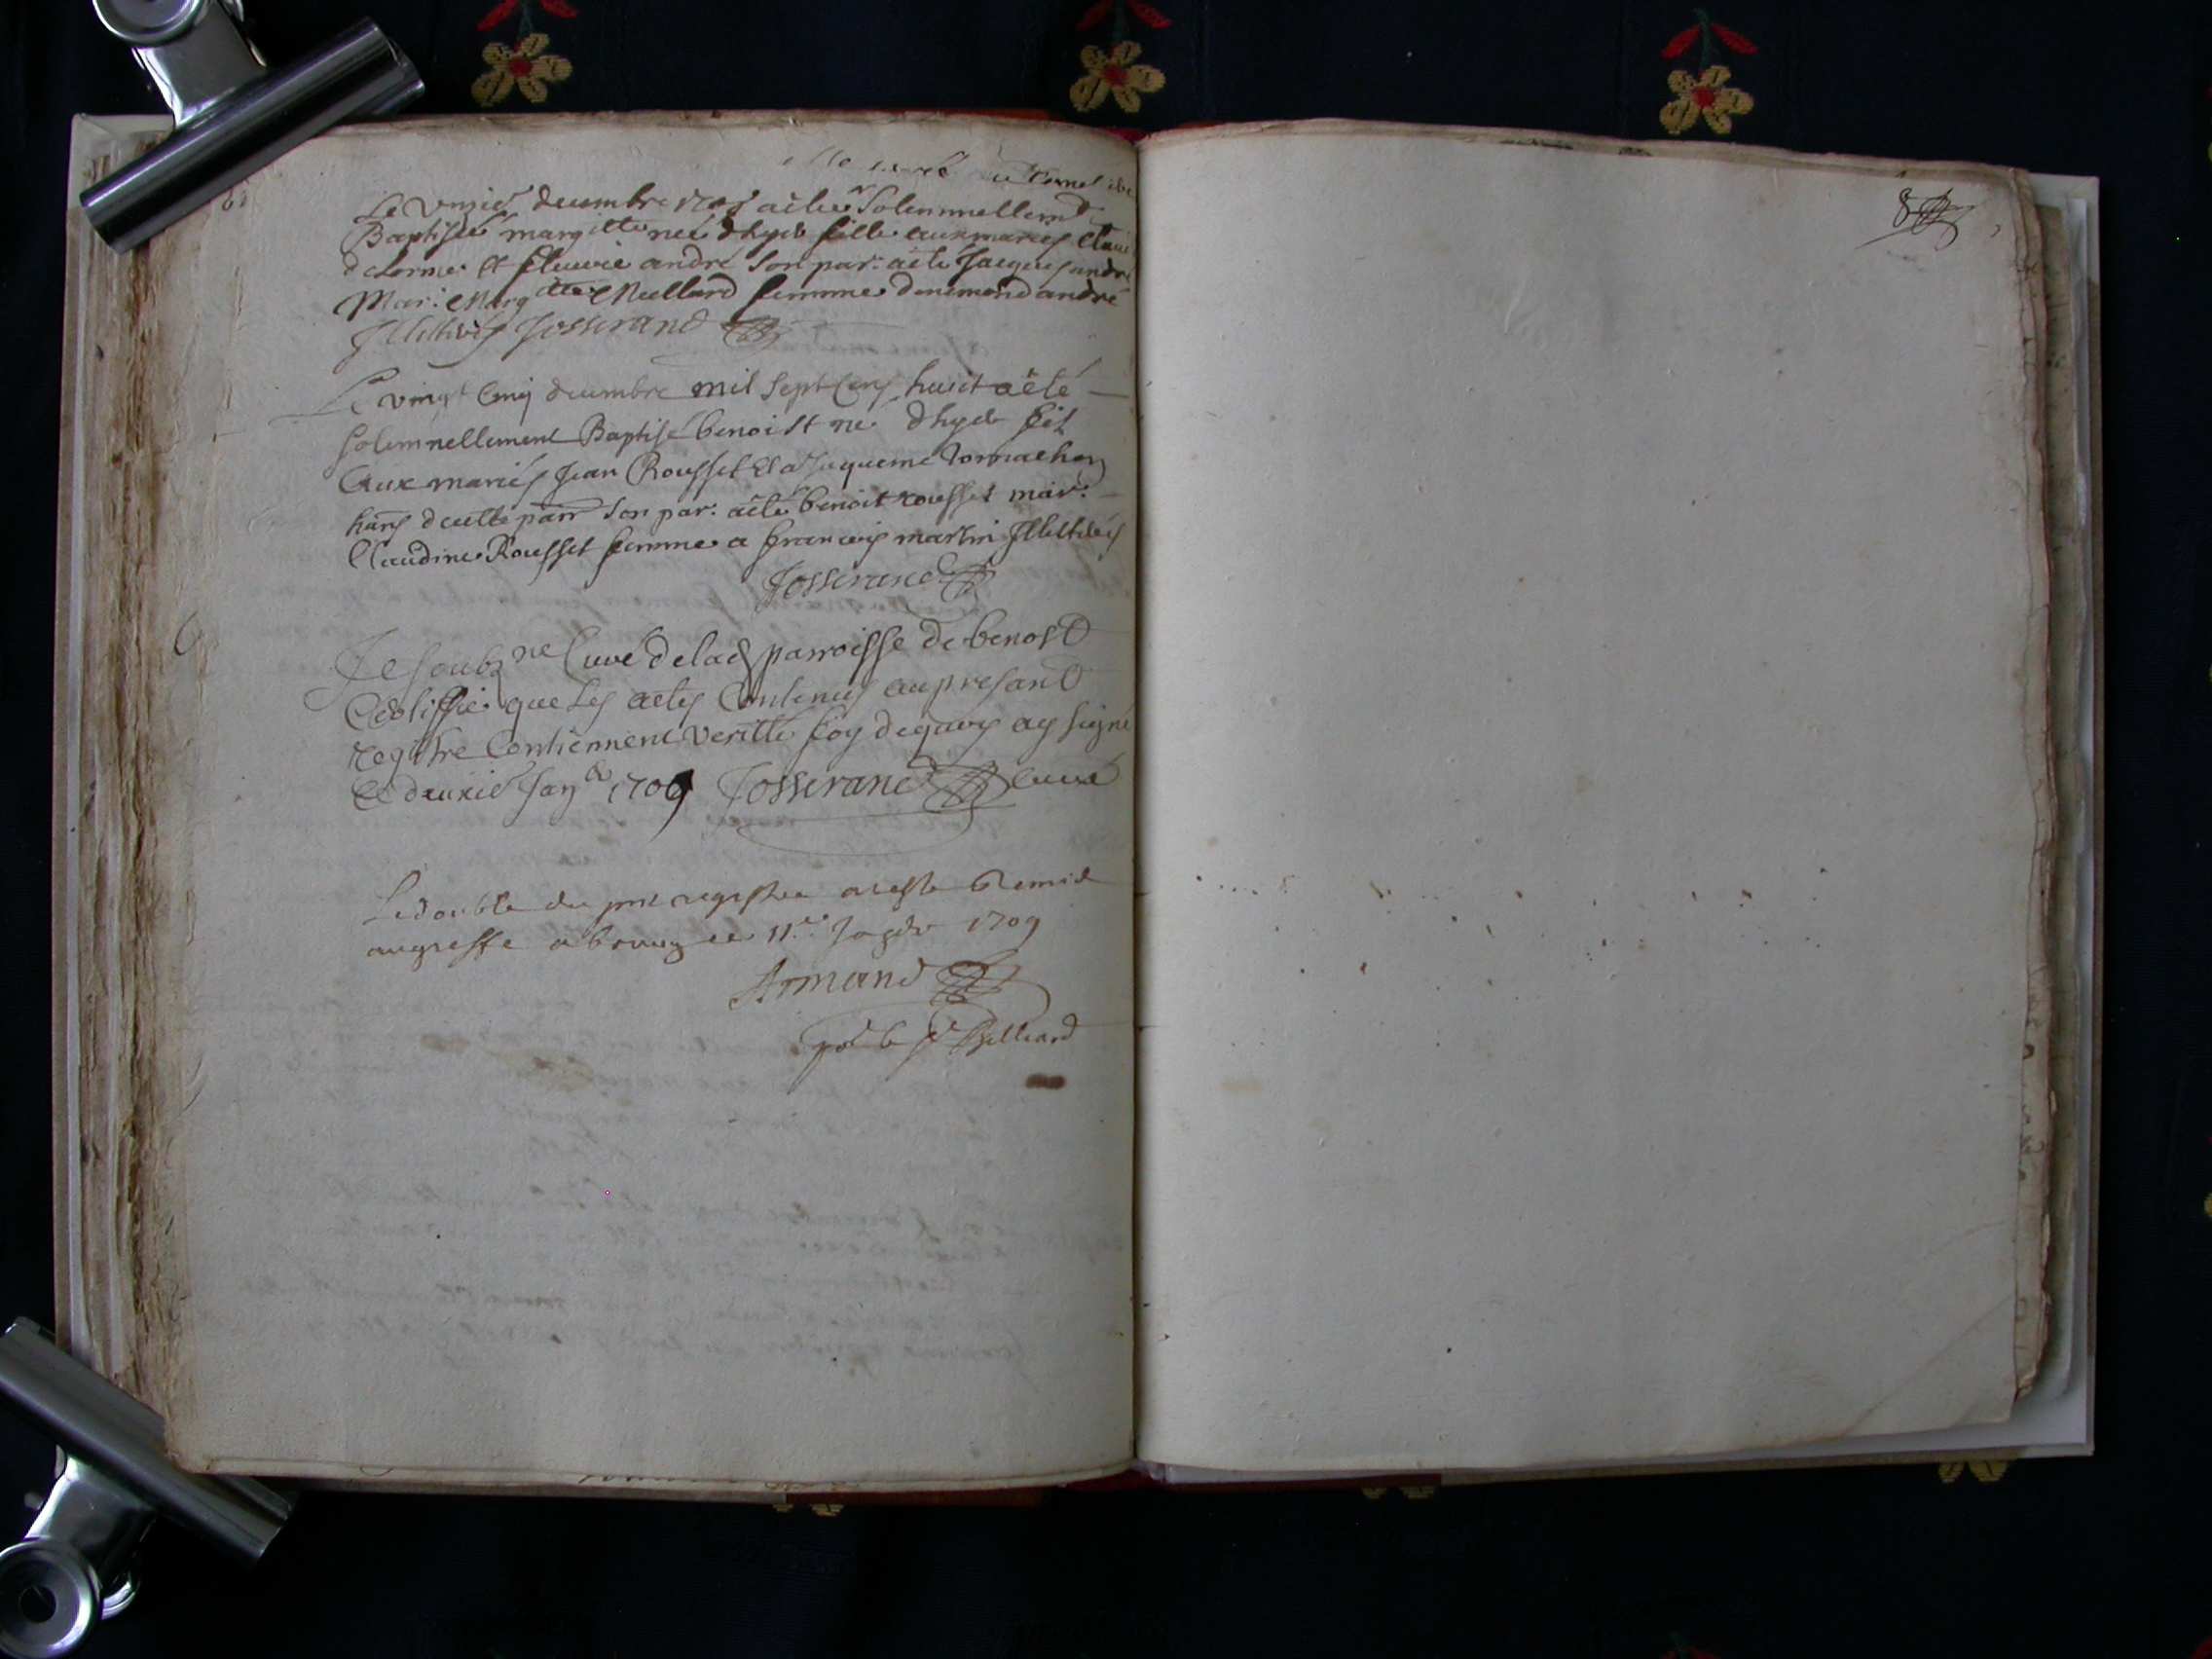 Le onzie decembre 1708 a eté Solemnellemt
Baptisée margtte née d'hyer fille aux mariés Claude
delorme et fleurie andré son par: a eté Jacques andré
Mar: Margtte Mellard femme d'enemond andré
Illitterés Josserand
Le vingt Cinq decembre mil sept Cens huict a eté
Solemnellement Baptisé benoist né d'hyer fils
Aux mariés Jean Rousset et a Jaqueme
hans de cette parr son par: a eté benoit rousset mar:
Claudine Rousset femme a francois martin Illiterés
Josserand
Je soubzne Curé de lad parroisse de benost
Certiffie que les actes Contenus au presant
registre Contiennent veritté foy dequoy ay signé
Ce deuxie Janr 1709 Josserand Curé
Le double du pnt registre a esté Remis
au greffe a bourg ce 11e Janr 1709
Armand
por le Sr Billiard
8